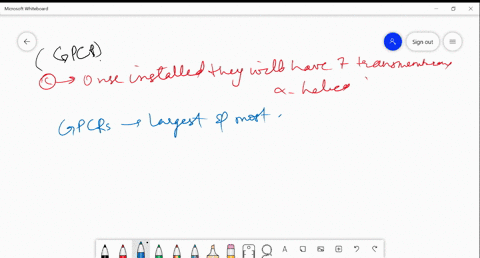 Microsoft Whiteboard
Sign out
(GPCR)
C → Once installed they will have 7 transmembrane
α-helice
GPCRs → largest & most